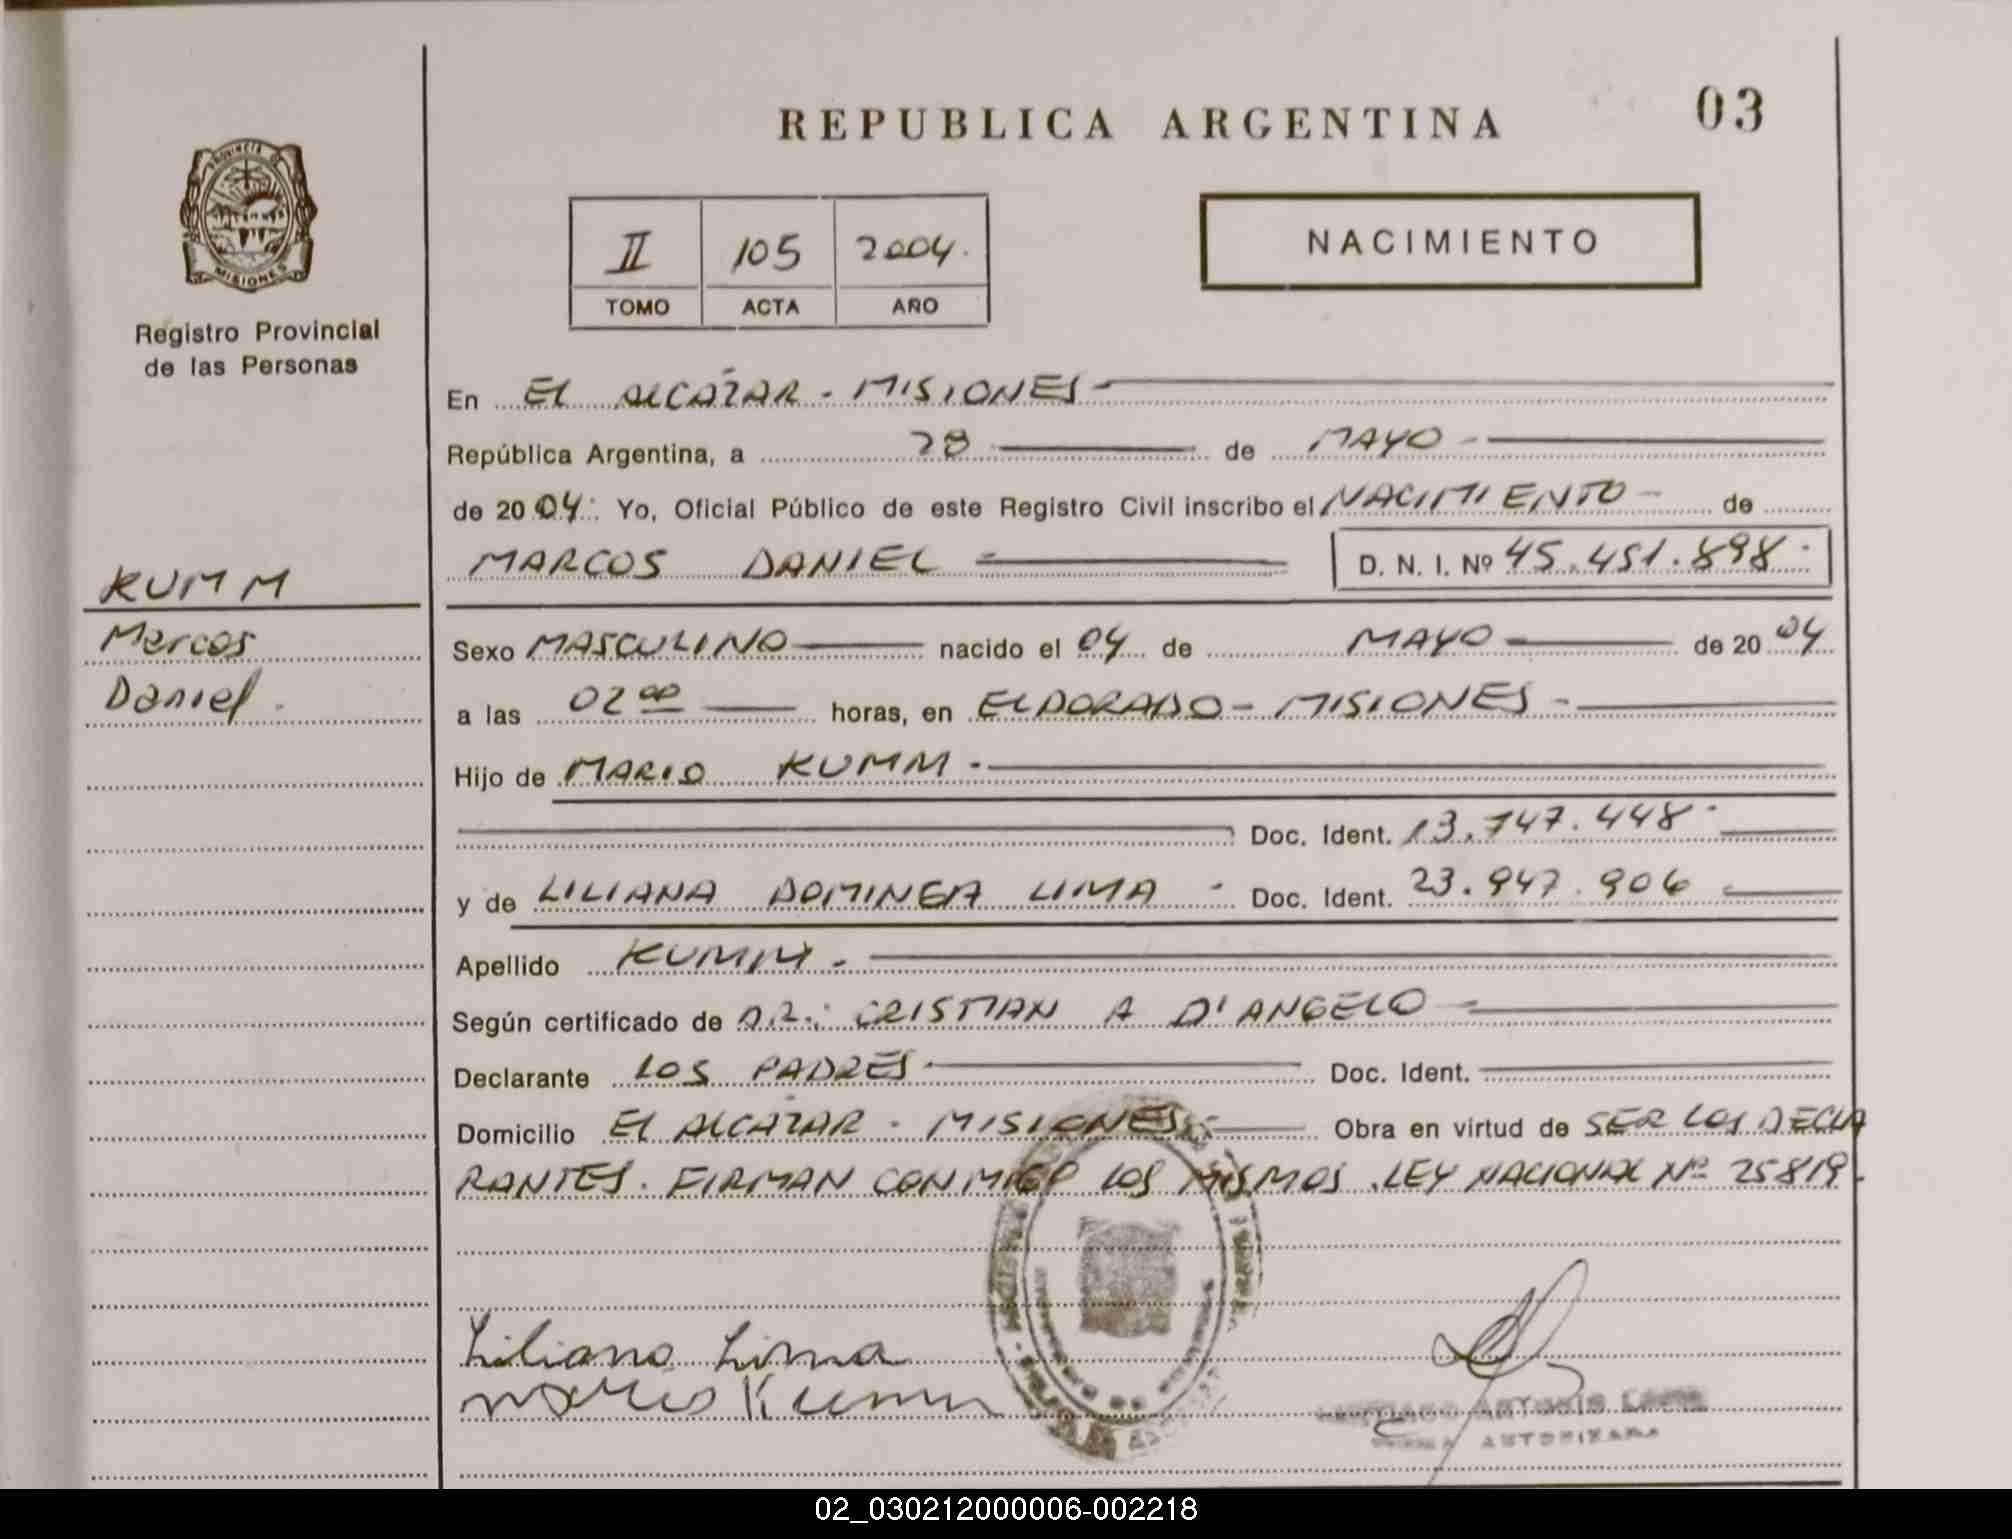 REPUBLICA ARGENTINA
03
PROVINCIA DE
MISIONES
Registro Provincial
de las Personas
II 105 2004.
TOMO ACTA AÑO
NACIMIENTO
En EL ALCÁZAR - MISIONES -
República Argentina, a 28 de MAYO -
de 2004. Yo, Oficial Público de este Registro Civil inscribo el NACIMIENTO - de
MARCOS DANIEL D. N. I. Nº 45.451.898.
KUMM
Marcos
Daniel.
Sexo MASCULINO nacido el 04 de MAYO de 2004
a las 02 00 horas, en ELDORADO - MISIONES -
Hijo de MARIO KUMM -
Doc. Ident. 13.747.448
y de LILIANA DOMINGA LIMA - Doc. Ident. 23.947.906
Apellido KUMM -
Según certificado de DR.: CRISTIAN A D'ANGELO
Declarante LOS PADRES Doc. Ident.
Domicilio EL ALCÁZAR - MISIONES - Obra en virtud de SER LOS DECLA
RANTES. FIRMAN CONMIGO LOS MISMOS. LEY NACIONAL Nº 25819.
Liliana Lima
Mario Kumm
ANTONIO
AUTORIZADA
02_030212000006-002218